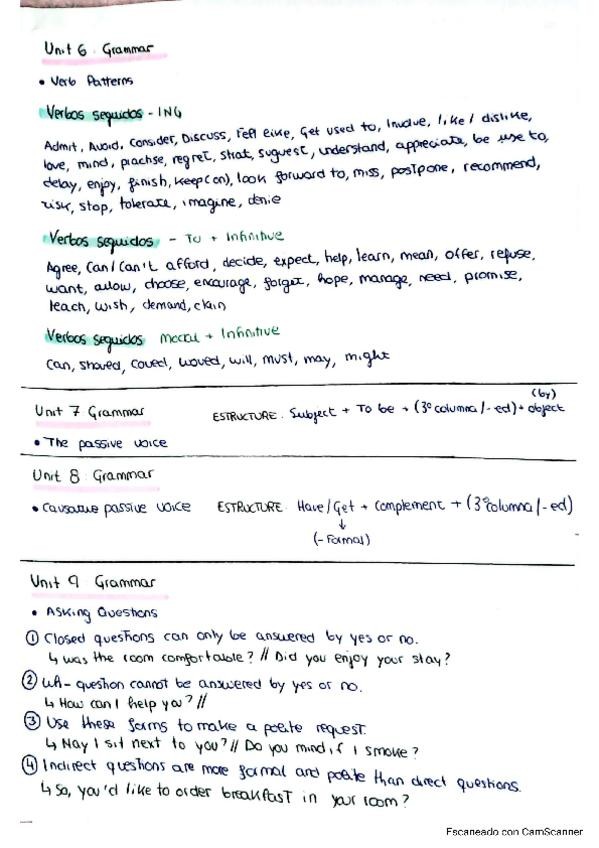 Unit 6. Grammar
• Verb Patterns
Verbos seguidos - ING
Admit, Avoid, consider, Discuss, feel like, Get used to, Involve, like / dislike,
love, mind, practise, regret, start, suguest, understand, appreciate, be use to,
delay, enjoy, finish, keep(on), look forward to, miss, postpone, recommend,
risk, stop, tolerate, imagine, denie
Verbos seguidos - To + Infinitive
Agree, Can/Can't afford, decide, expect, help, learn, mean, offer, refuse,
want, allow, choose, encourage, forget, hope, manage, need, promise,
teach, wish, demand, claim
Verbos seguidos Modal + Infinitive
Can, should, could, would, will, must, may, might
Unit 7 Grammar
ESTRUCTURE: Subject + To be + (3º columna/-ed) + object
(by)
• The passive voice
Unit 8. Grammar
• Causative passive voice ESTRUCTURE: Have/Get + complement + (3º columna/-ed)
↓
(- Formal)
Unit 9 Grammar
• Asking Questions
① Closed questions can only be answered by yes or no.
↳ was the room comfortable? // Did you enjoy your stay?
② Wh- question cannot be answered by yes or no.
↳ How can I help you? //
③ Use these forms to make a polite request.
↳ May I sit next to you? // Do you mind, if I smoke?
④ Indirect questions are more formal and polite than direct questions.
↳ So, you'd like to order breakfast in your room?
Escaneado con CamScanner